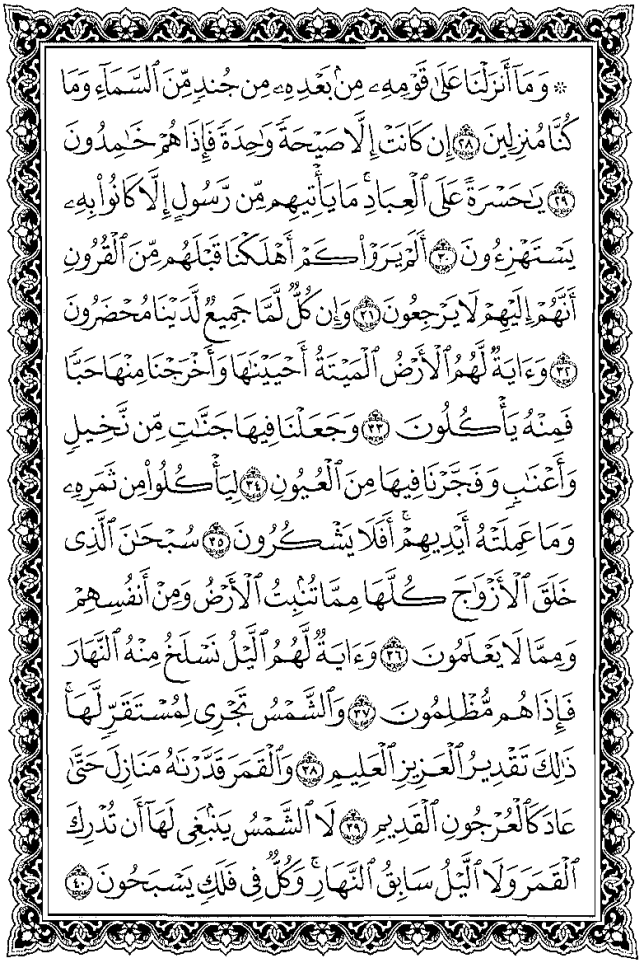 ۞ وَمَآ أَنزَلْنَا عَلَىٰ قَوْمِهِۦ مِنۢ بَعْدِهِۦ مِن جُندٍ مِّنَ ٱلسَّمَآءِ وَمَا
كُنَّا مُنزِلِينَ ٢٨ إِن كَانَتْ إِلَّا صَيْحَةً وَٰحِدَةً فَإِذَا هُمْ خَٰمِدُونَ
٢٩ يَٰحَسْرَةً عَلَى ٱلْعِبَادِ ۚ مَا يَأْتِيهِم مِّن رَّسُولٍ إِلَّا كَانُوا۟ بِهِۦ
يَسْتَهْزِءُونَ ٣٠ أَلَمْ يَرَوْا۟ كَمْ أَهْلَكْنَا قَبْلَهُم مِّنَ ٱلْقُرُونِ
أَنَّهُمْ إِلَيْهِمْ لَا يَرْجِعُونَ ٣١ وَإِن كُلٌّ لَّمَّا جَمِيعٌ لَّدَيْنَا مُحْضَرُونَ
٣٢ وَءَايَةٌ لَّهُمُ ٱلْأَرْضُ ٱلْمَيْتَةُ أَحْيَيْنَٰهَا وَأَخْرَجْنَا مِنْهَا حَبًّا
فَمِنْهُ يَأْكُلُونَ ٣٣ وَجَعَلْنَا فِيهَا جَنَّٰتٍ مِّن نَّخِيلٍ
وَأَعْنَٰبٍ وَفَجَّرْنَا فِيهَا مِنَ ٱلْعُيُونِ ٣٤ لِيَأْكُلُوا۟ مِن ثَمَرِهِۦ
وَمَا عَمِلَتْهُ أَيْدِيهِمْ ۖ أَفَلَا يَشْكُرُونَ ٣٥ سُبْحَٰنَ ٱلَّذِى
خَلَقَ ٱلْأَزْوَٰجَ كُلَّهَا مِمَّا تُنۢبِتُ ٱلْأَرْضُ وَمِنْ أَنفُسِهِمْ
وَمِمَّا لَا يَعْلَمُونَ ٣٦ وَءَايَةٌ لَّهُمُ ٱلَّيْلُ نَسْلَخُ مِنْهُ ٱلنَّهَارَ
فَإِذَا هُم مُّظْلِمُونَ ٣٧ وَٱلشَّمْسُ تَجْرِى لِمُسْتَقَرٍّ لَّهَا ۚ
ذَٰلِكَ تَقْدِيرُ ٱلْعَزِيزِ ٱلْعَلِيمِ ٣٨ وَٱلْقَمَرَ قَدَّرْنَٰهُ مَنَازِلَ حَتَّىٰ
عَادَ كَٱلْعُرْجُونِ ٱلْقَدِيمِ ٣٩ لَا ٱلشَّمْسُ يَنۢبَغِى لَهَآ أَن تُدْرِكَ
ٱلْقَمَرَ وَلَا ٱلَّيْلُ سَابِقُ ٱلنَّهَارِ ۚ وَكُلٌّ فِى فَلَكٍ يَسْبَحُونَ ٤٠